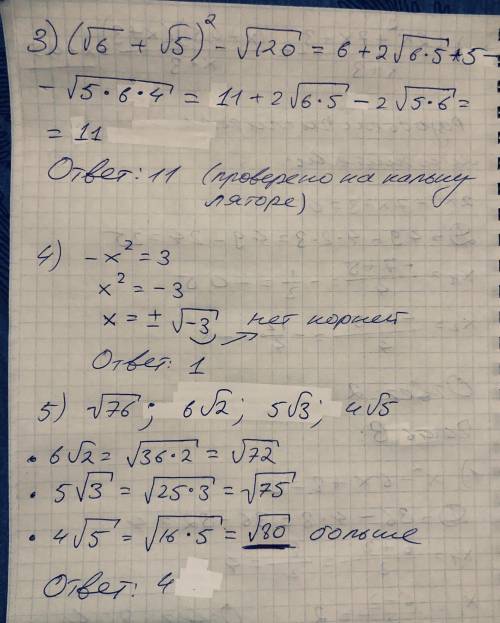 3) (√6 + √5)² - √120 = 6 + 2√6·5 + 5 -
- √5·6·4 = 11 + 2√6·5 - 2√5·6 =
= 11
Ответ: 11 (проверено на кальку
ляторе)
4) -x² = 3
x² = -3
x = ± √-3 → нет корней
Ответ: 1
5) √76; 6√2; 5√3; 4√5
• 6√2 = √36·2 = √72
• 5√3 = √25·3 = √75
• 4√5 = √16·5 = √80 больше
Ответ: 4